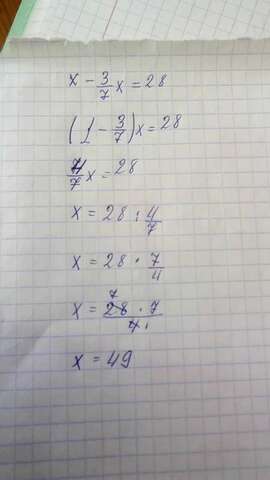 x - 3/7 x = 28
(1 - 3/7)x = 28
4/7 x = 28
x = 28 : 4/7
x = 28 · 7/4
x = 28 7 · 7 / 4 1
x = 49